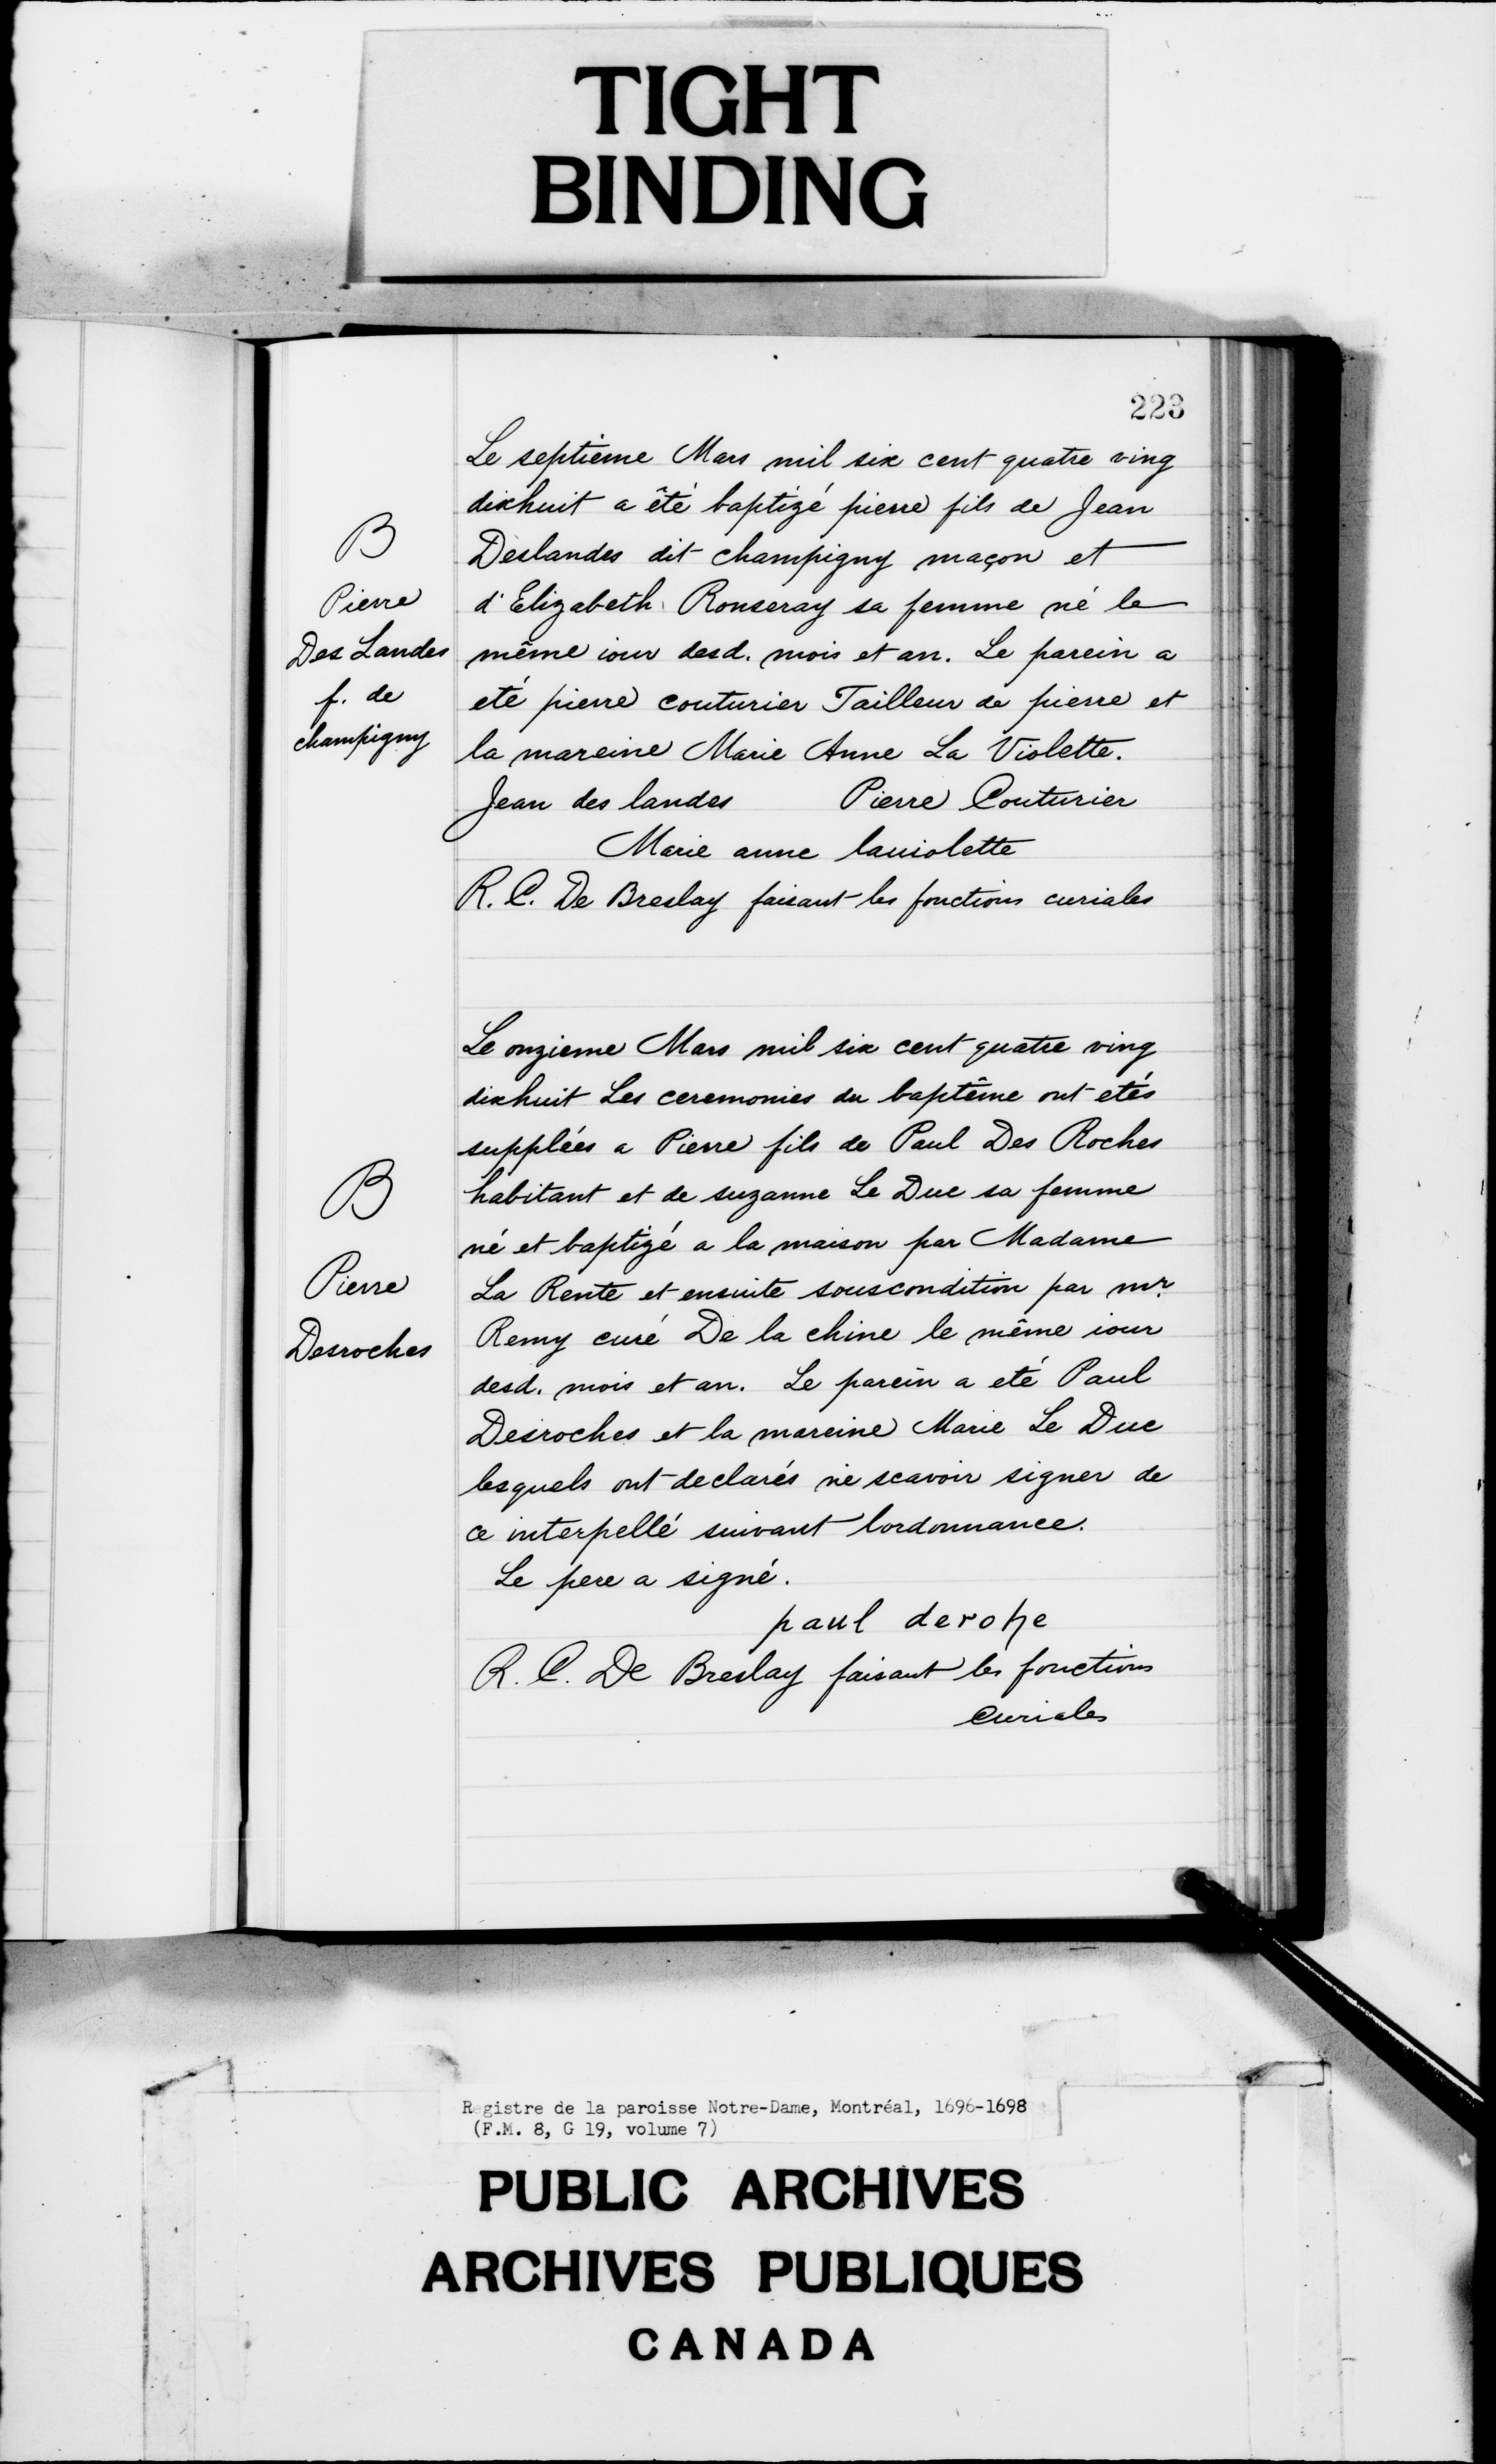 TIGHT
BINDING
223
Le septième Mars mil six cent quatre ving
dixhuit a êté baptizé pierre fils de Jean
Deslandes dit champigny maçon et
d'Elizabeth Ronseray sa femme né le
même iour desd. mois et an. Le parein a
eté pierre couturier Tailleur de pierre et
la mareine Marie Anne La Violette.
Jean des landes Pierre Couturier
Marie anne lauiolette
R. C. De Breslay faisant les fonctions curiales
B
Pierre
Des Landes
f. de
champigny
Le onzieme Mars mil six cent quatre ving
dixhuit Les ceremonies du baptême ont etés
supplées a Pierre fils de Paul Des Roches
habitant et de suzanne Le Duc sa femme
né et baptizé a la maison par Madame
La Rente et ensuite souscondition par mr.
Remy curé De la chine le même iour
desd. mois et an. Le parein a eté Paul
Desroches et la mareine Marie Le Duc
lesquels ont declarés ne scavoir signer de
ce interpellé suivant lordonnance.
Le pere a signé.
paul derohe
R. C. De Breslay faisant les fonctions
Curiales
B
Pierre
Desroches
Registre de la paroisse Notre-Dame, Montréal, 1696-1698
(F.M. 8, G 19, volume 7)
PUBLIC ARCHIVES
ARCHIVES PUBLIQUES
CANADA